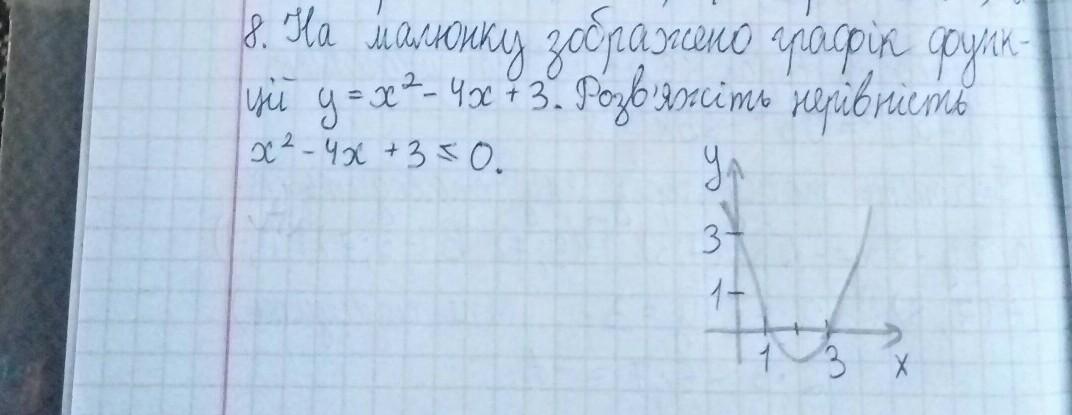 8. На малюнку зображено графік функ-
ції y = x² - 4x + 3. Розв'яжіть нерівність
x² - 4x + 3 ≤ 0.
y
3
1
1 3 x